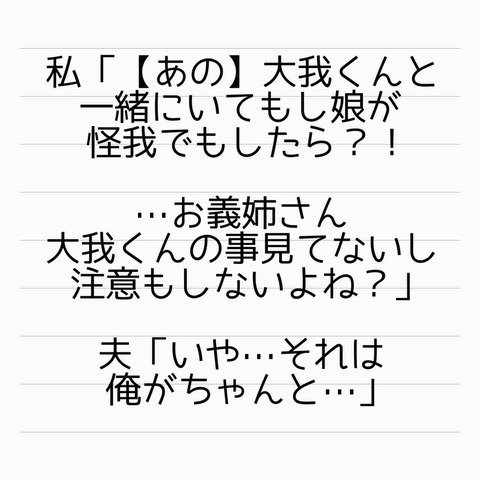 私「【あの】大我くんと
一緒にいてもし娘が
怪我でもしたら？！
…お義姉さん
大我くんの事見てないし
注意もしないよね？」
夫「いや…それは
俺がちゃんと…」